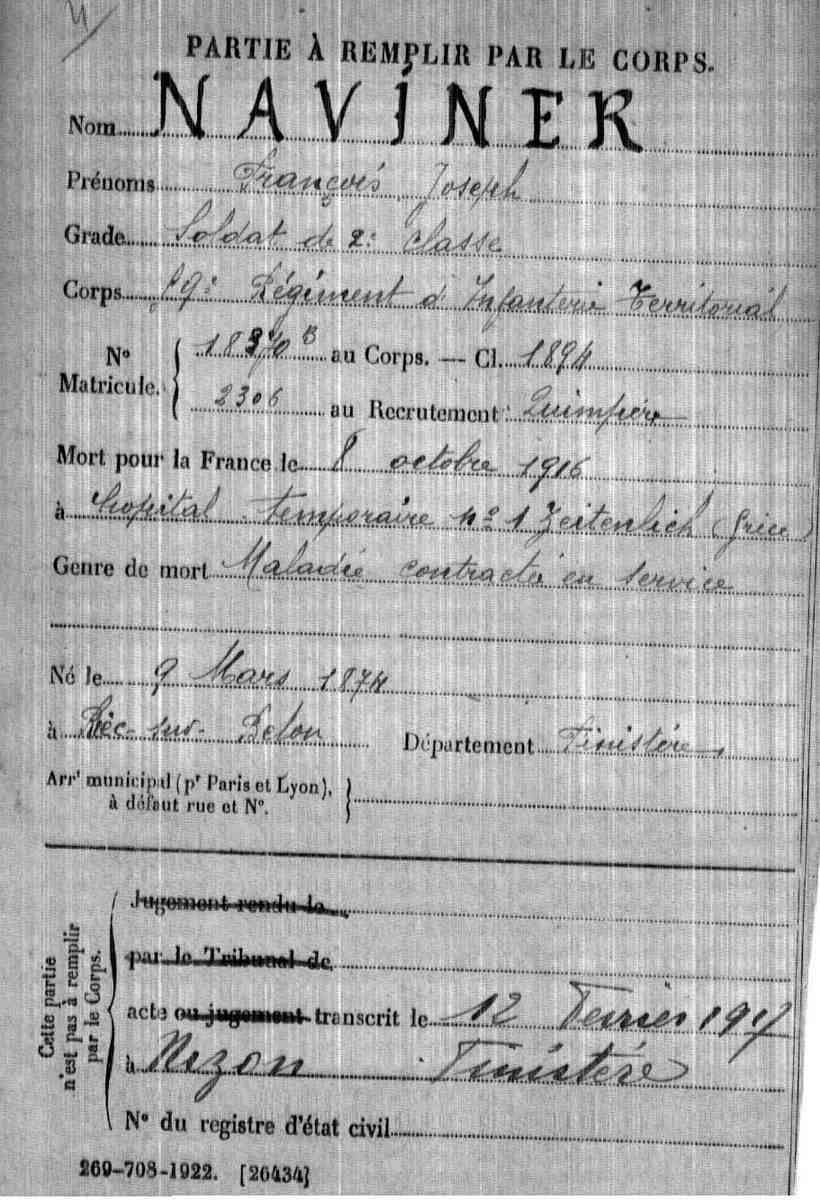 PARTIE À REMPLIR PAR LE CORPS.
Nom NAVINER
Prénoms François Joseph
Grade Soldat de 2e classe
Corps Régiment d'Infanterie Territorial
No Matricule. { 18370 B au Corps. — Cl. 1894
2306 au Recrutement Quimper
Mort pour la France le 8 octobre 1916
à hopital temporaire no 1 Zeitenlick (Grèce)
Genre de mort Maladie contractée en service
Né le 9 Mars 1874
à Riec-sur-Belon Département Finistère
Arrt municipal (pr Paris et Lyon), à défaut rue et No.
Cette partie n'est pas à remplir par le Corps.
Jugement rendu le
par le Tribunal de
acte ou jugement transcrit le 12 Fevrier 1917
à Nizon Finistère
No du registre d'état civil
269-708-1922. [26434]